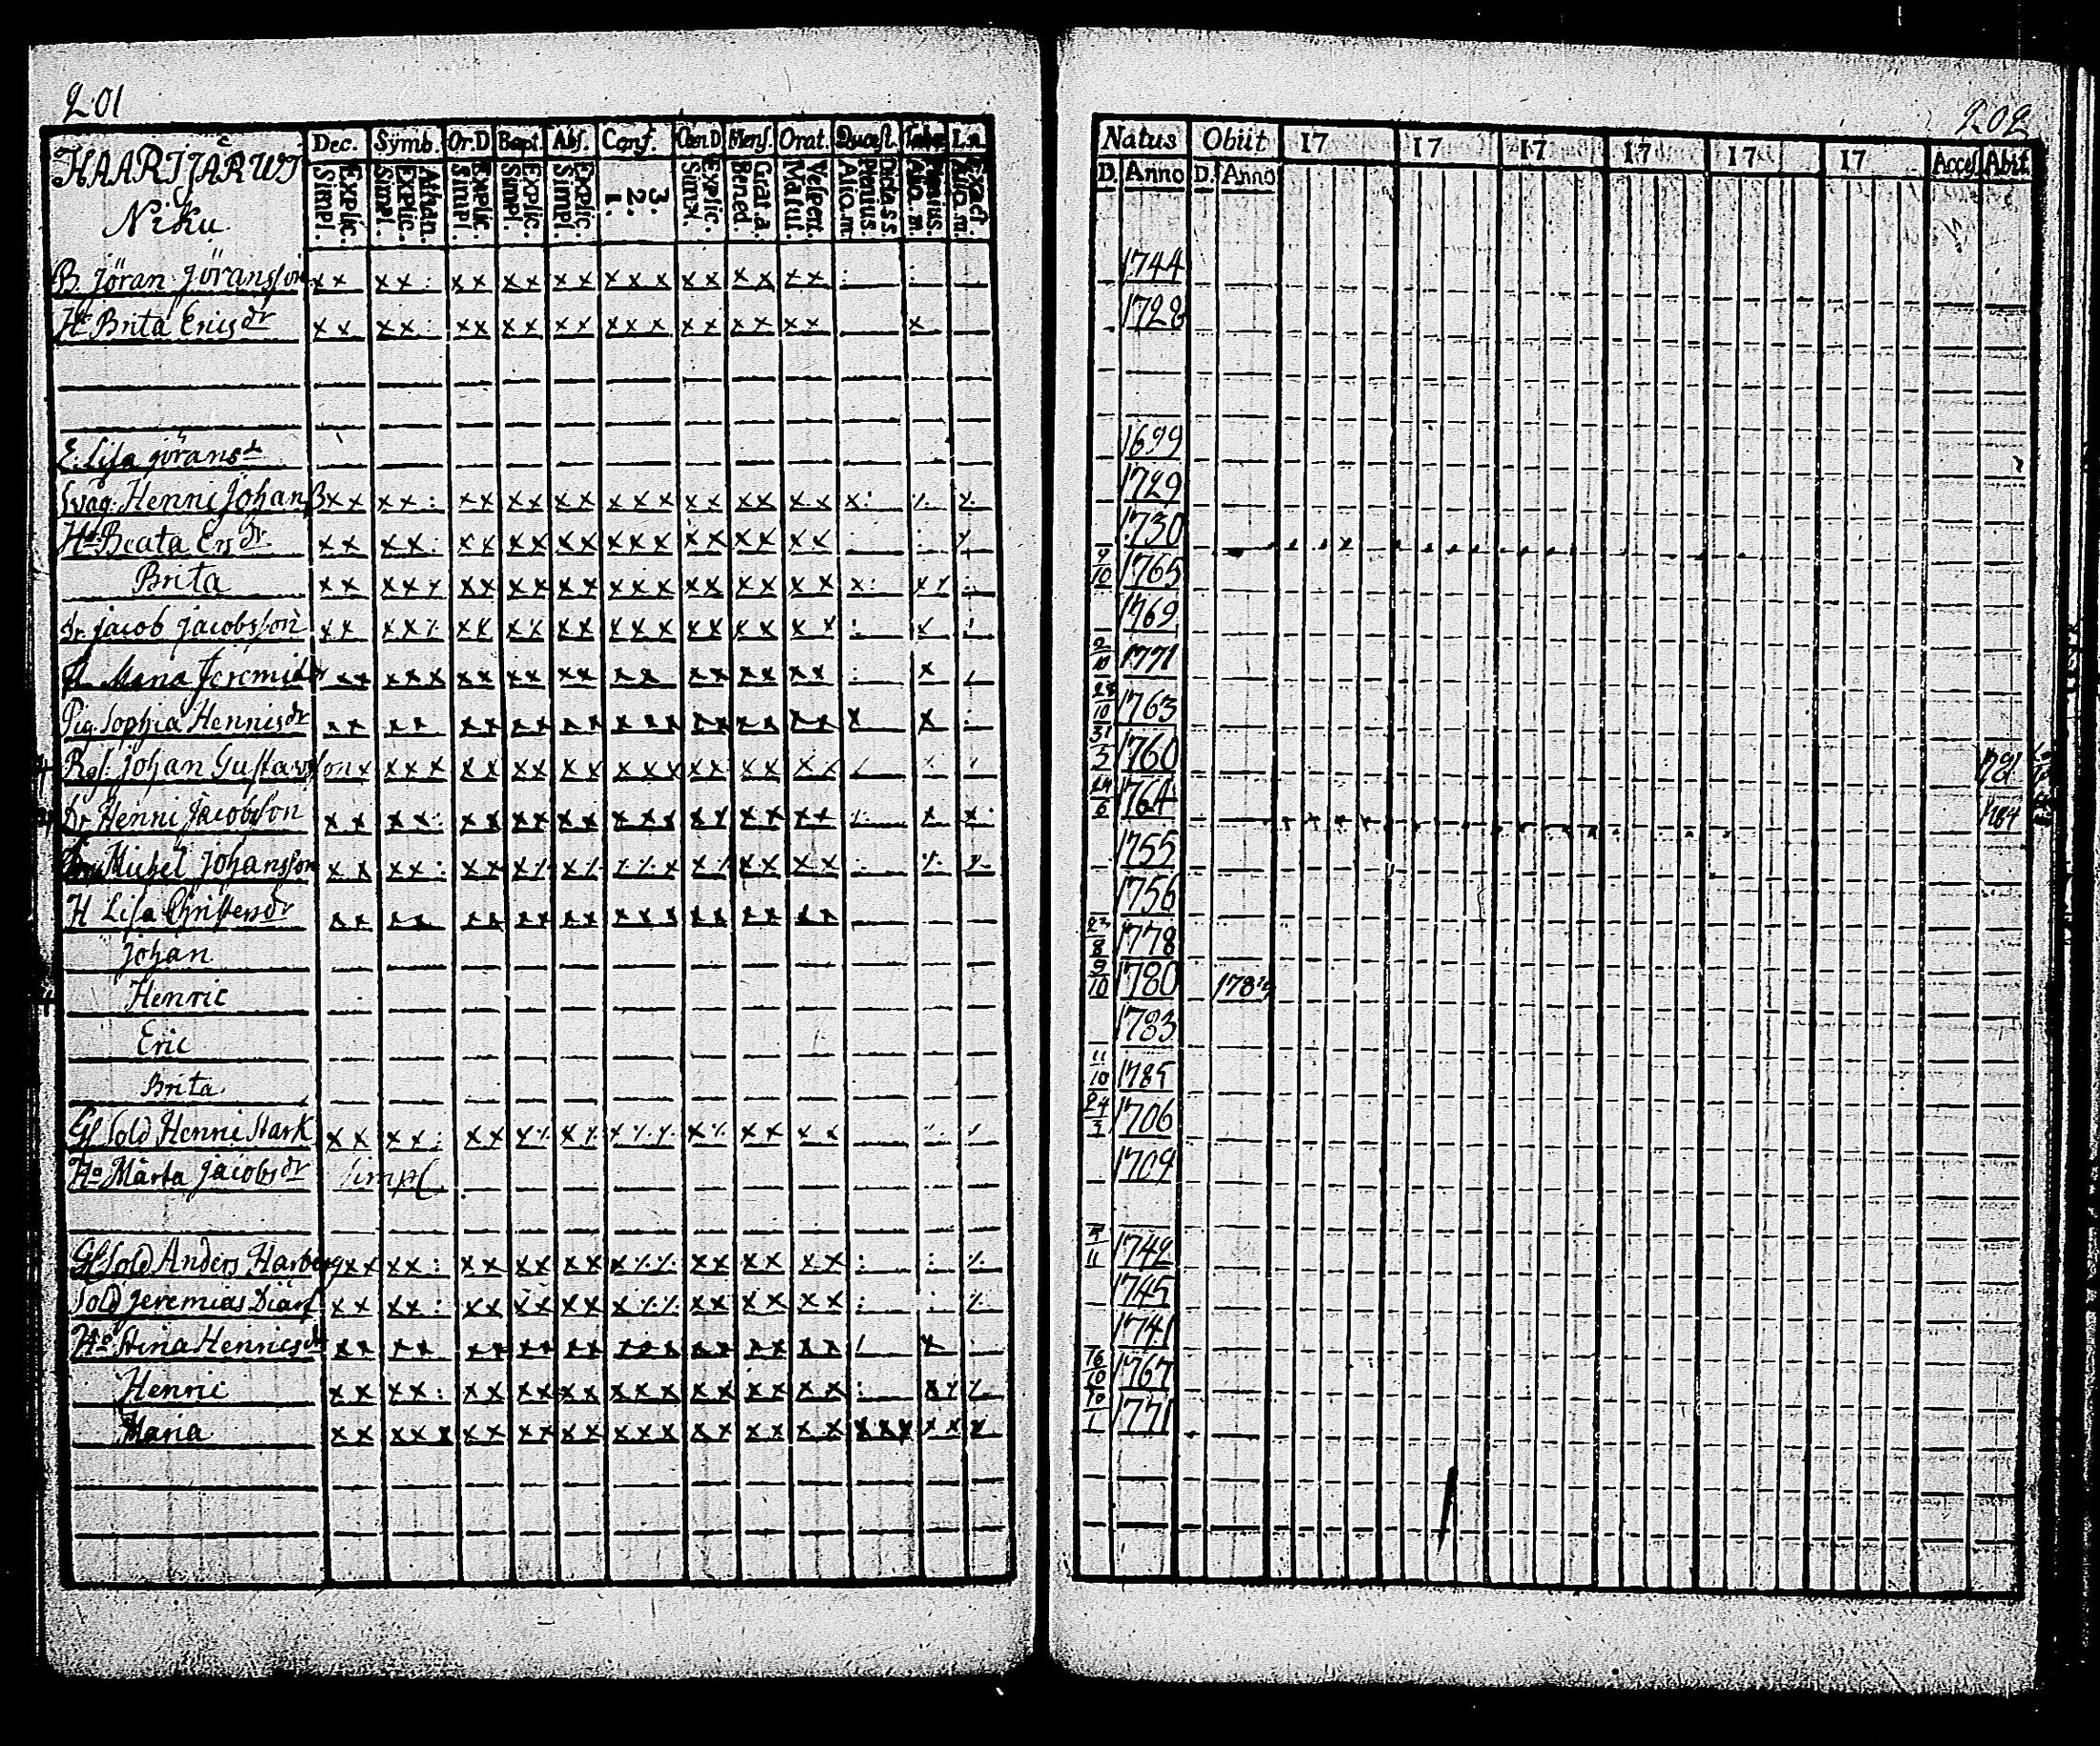 201
HAARIJÄRWI
Niku
Dec. Symb. Or.D Bapt. Abs. Conf. Cœn.D Mens. Orat. Quæst. L.n.
Simpl. Explic. Simpl. Explic. Athan. Simpl. Explic. Simpl. Explic. Simpl. Explic. 1. 2. 3. Simpl. Explic. Bened. Grat.a. Matut. Vespert. Aliq.m Plenius. Dicta s.s. Aliq.m Plenius. Aliq.m. Exact.
B. Jöran Jöransson xx xx: xx xx xx xxx xx xx xx : :
H. Brita Ericsdr xx xx: xx xx xx xxx xx xx xx x
E. Lisa Jöransd
Svåg. Henric Johanß xx xx: xx xx xx xxx xx xx xx x:
Ha Beata Ersdr xx xx: xx xx xx xxx xx xx xx : :
Brita xx xx xx xx xx xxx xx xx xx x:
dr. Jacob Jacobsson xx xx xx xx xx xxx xx xx xx :
H Maria Jeremiædr xx xxx xx xx xx xx xx xx xx : x
Pig. Sophia Henricsdr xx xx xx xx xx xxx xx xx xx x x :
Johan Gustavsson x xxx xx xx xx xxx xx xx xx
Dr Henric Jacobsson xx xx xx xx xx xxx xx xx xx x
Michel Johansson xx xx: xx
H Lisa Christersdr xx xx xx xx xx xxx xx xx xx
Johan
Henric
Eric
Brita
Gl Sold Henric Stark xx xx: xx
Ha Märta Jacobsdr simpl
Gl Sold Anders Harberg xx xx: xx xx xx
Sold Jeremias Diärf xx xx: xx xx xx
Ha Stina Henricsdr xx xx xx xx xx xxx xx xx xx x :
Henric xx xx: xx xx xx xxx xx xx xx :
Maria xx xxx xx xx xx xxx xx xx xx xxx xx x
202
Natus Obiit 17 17 17 17 17 17 Access Abit
D. Anno D. Anno
1744
1728
1699
1729
1730
9/10 1765
1769
9/10 1771
28/10 1763
31/3 1760 1781
24/6 1764 1784
1755
1756
23/8 1778
9/10 1780 178
1783
11/10 1785
24/3 1706
1709
1742
1745
1741
16/10 1767
10/1 1771